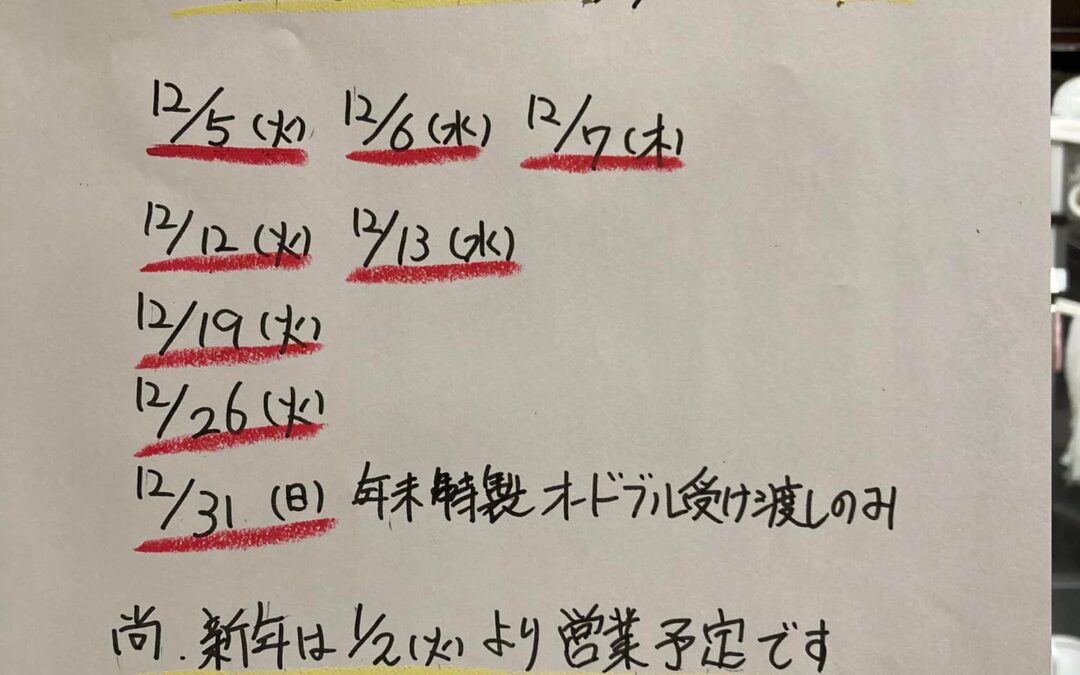 12/5(火) 12/6(水) 12/7(木)
12/12(火) 12/13(水)
12/19(火)
12/26(火)
12/31(日) 年末特製オードブル受け渡しのみ
尚.新年は1/2(火)より営業予定です